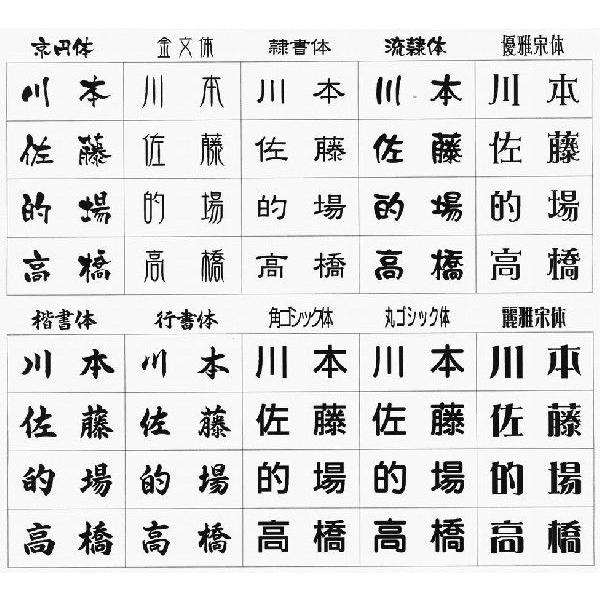 京円体 金文体 隷書体 流隷体 優雅宋体
川 本 川 本 川 本 川 本 川 本
佐 藤 佐 藤 佐 藤 佐 藤 佐 藤
的 場 的 場 的 場 的 場 的 場
高 橋 高 橋 高 橋 高 橋 高 橋
楷書体 行書体 角ゴシック体 丸ゴシック体 麗雅宋体
川 本 川 本 川 本 川 本 川 本
佐 藤 佐 藤 佐 藤 佐 藤 佐 藤
的 場 的 場 的 場 的 場 的 場
高 橋 高 橋 高 橋 高 橋 高 橋